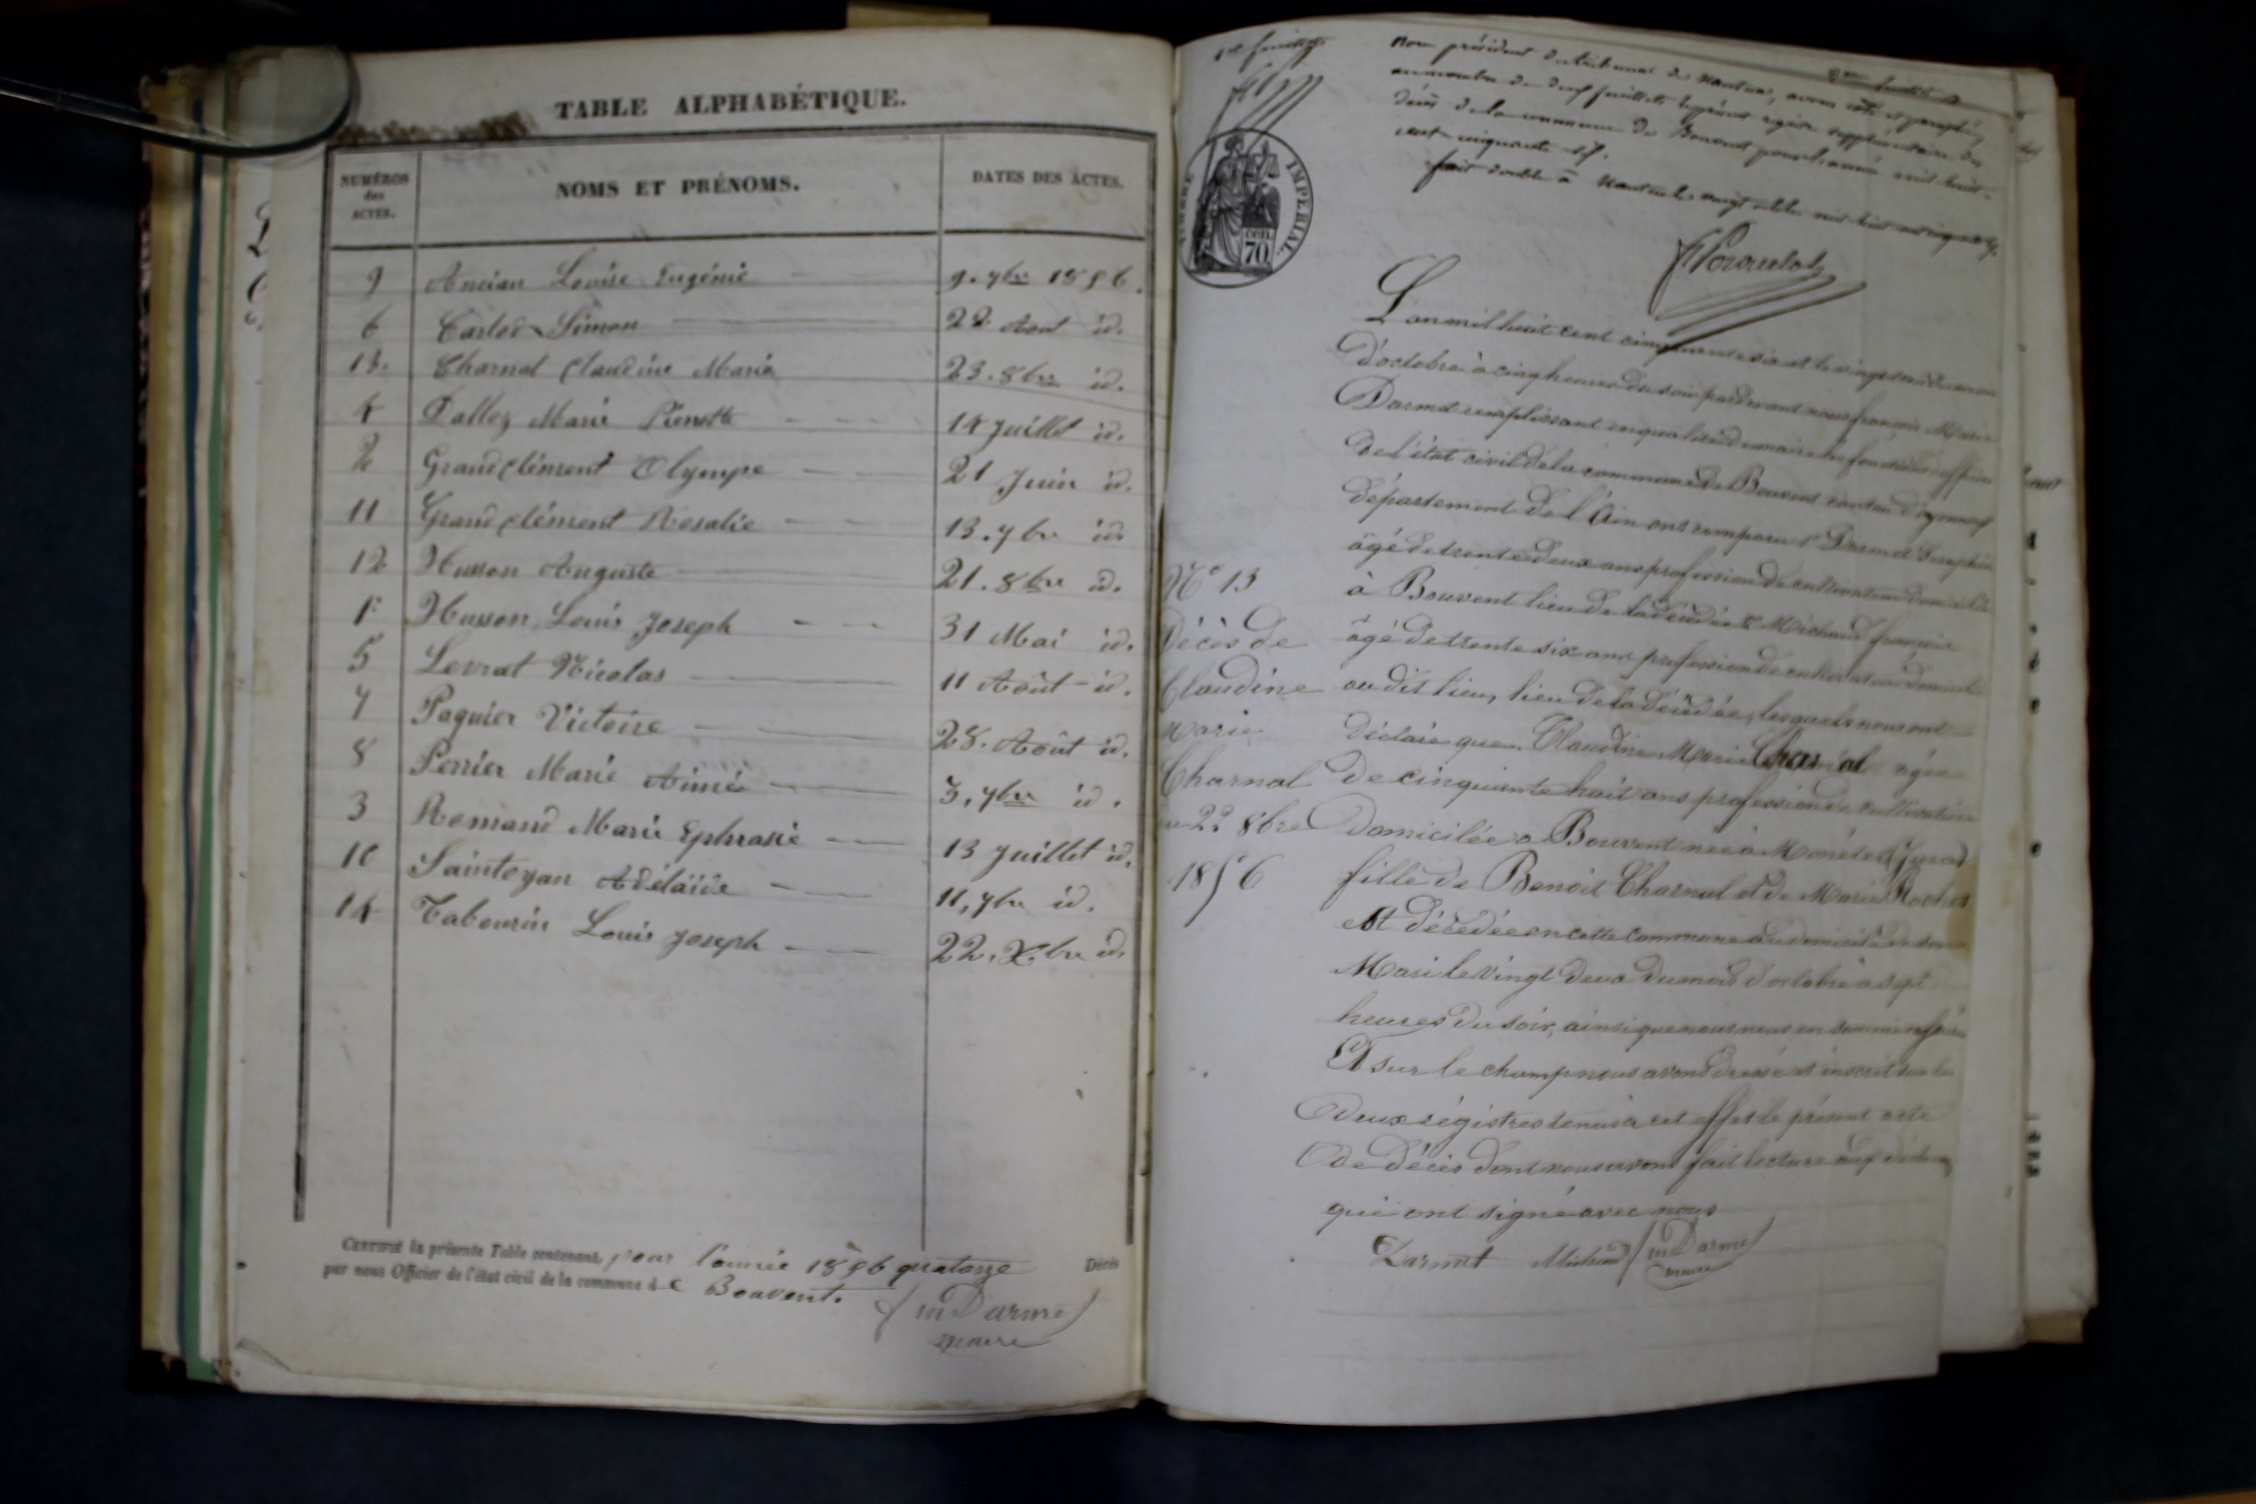 TABLE ALPHABÉTIQUE.
NUMÉROS des ACTES. NOMS ET PRÉNOMS. DATES DES ACTES.
9 Ancian Louise Eugénie 9. 7bre 1856.
6 Carlod Simon 22 Aout id.
13. Charnal Claudine Marie 23. 8bre id.
4 Dalloz Marie Pierrette 14 Juillet id.
2 Grandclément Olympe 21 Juin id.
11 Grandclément Rosalie 13. 7bre id.
12 Husson Auguste 21. 8bre id.
1 Husson Louis Joseph 31 Mai id.
5 Levrat Nicolas 11 Août id.
7 Paquier Victoire 28. Août id.
8 Perrier Marie Aimée 3, 7bre id.
3 Romand Marie Ephrasie 13 Juillet id.
10 Saintoyan Adélaïde 11, 7bre id.
14 Tabourin Louis Joseph 22. Xbre id.
Certifié la présente Table contenant, pour l'année 1856 quatorze Décès
par nous Officier de l'état civil de la commune de Bouvent.
Darmet
maire
1er feuillet
président du tribunal de Nantua, avons coté et paraphé,
au nombre de deux feuillets le présent registre supplémentaire des
décès de la commune de Bouvent pour l'année mil huit
cent cinquante six.
fait double à Nantua le vingt mil huit cent cinquante six.
TIMBRE IMPÉRIAL.
70 cen.
L'an mil huit cent cinquante six et le vingt trois du mois
d'octobre à cinq heures du soir pardevant nous françois Marie
Darmet remplissant en qualité de maire les fonctions d'officier
de l'état civil de la commune de Bouvent canton d'oyonnax
département de l'Ain ont comparu Darmet
âgé de trente deux ans profession de cultivateur domicilié
à Bouvent lieu de la décédée et Michaud françois
âgé de trente six ans profession de cultivateur domicilié
au dit lieu, lieu de la décédée, lesquels nous ont
déclaré que Claudine Marie Charnal agée
de cinquante huit ans profession de cultivatrice
domiciliée à Bouvent née à (Jura)
fille de Benoit Charnal et de Marie Rochet
est décédée en cette commune au domicile de son
Mari le vingt deux du mois d'octobre à sept
heures du soir, ainsi que nous nous en sommes assuré
Et sur le champ nous avons dressé et inscrit sur les
deux régistres tenus à cet effet le présent acte
de décès dont nous avons fait lecture aux
qui ont signé avec nous
Darmet Michaud Darmet
maire
N° 13
Décès de
Claudine
Marie
Charnal
8bre
1856